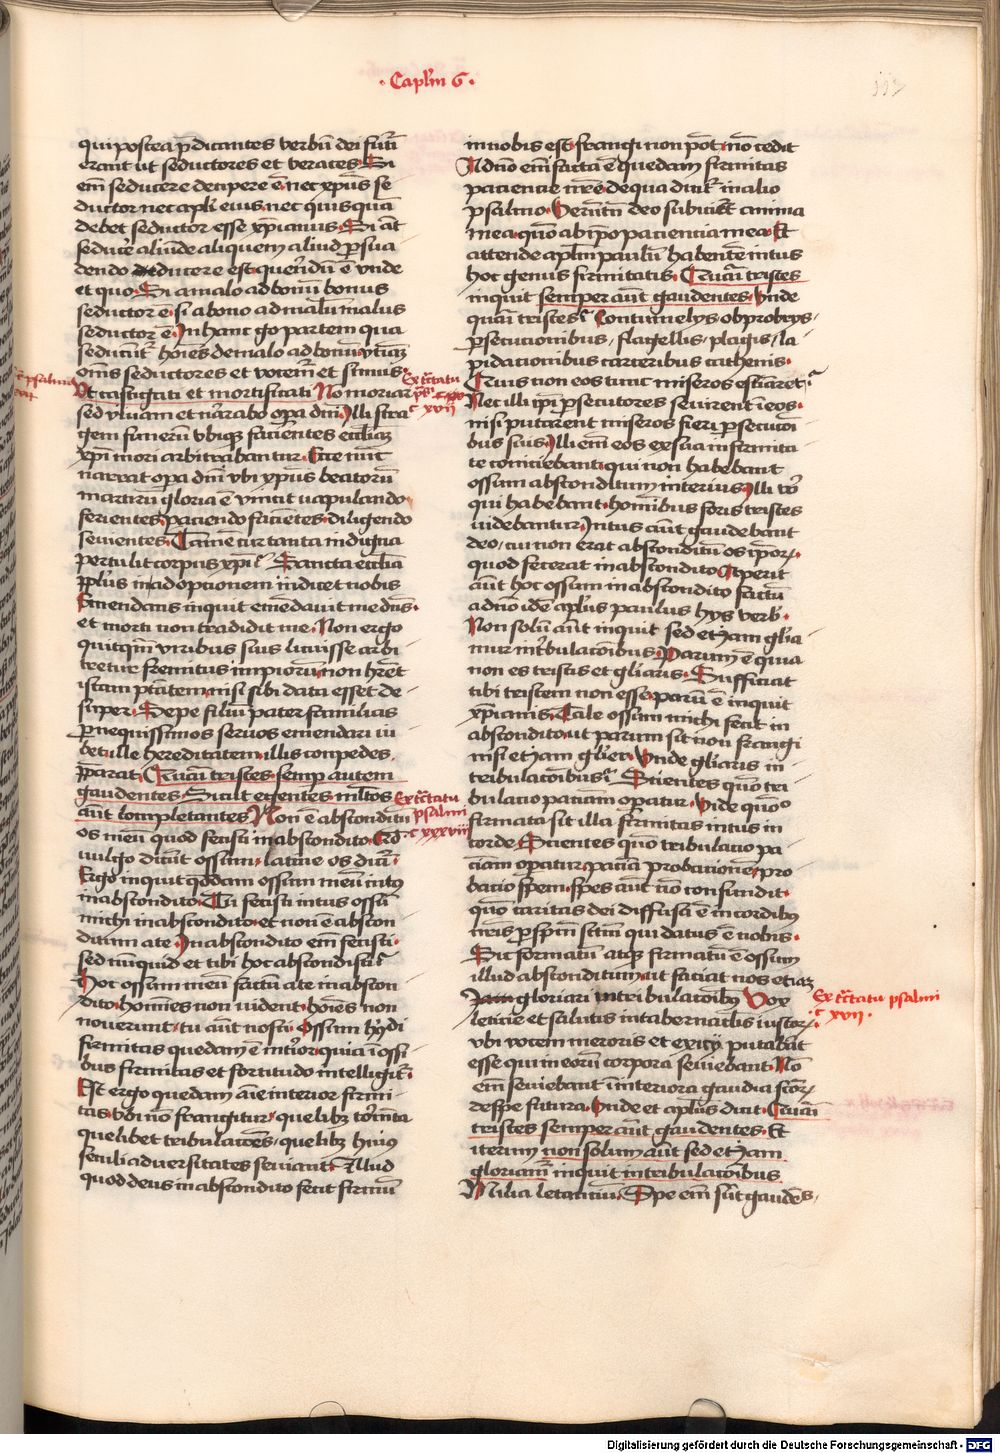 · Capłm 6 ·
qui postea p̄dicantes verbū dei futuri
erant ut seductores et veraces. Si
em̄ seducere decipere ē nec xp̄us se
ductor nec apl̄i eius nec quisquā
debet seductor esse xp̄ianus. Si aūt
seduce aliūde aliquem aliud p̄sua
dendo ducere est querēdū ē vnde
et quo. Si a malo ad bonū bonus
seductor ē. si a bono ad malū malus
seductor ē. In hanc g̊o partem qua
seducūt̄ hoīes de malo ad bonū vtinā
om̄s seductores et vocem̄ et simus.
Ut castigati et mortificati No moriar
sed viuam et narrabo opa dn̄i. Illi stra
gem funerū vbiqꝫ facientes eccliaꝫ
xp̄i mori arbitrabantur. Ecce nūc
narrat opa dn̄i vbi xp̄ius beatorū
martirū gloria ē vincit vapulando
ferientes. paciendo faciētes. diligendo
seuientes. Tamē cur tanta indigna
pertulit corpus xp̄i? Sancta eccl̄ia
pp̄l̄us in adoptionem indicet nobis
Emendans inquit emēdauit me dn̄s.
et morti non tradidit me. Non ergo
quicqm̄ viribus suis licuisse arbi
tretur fremitus impiorū. non hr̄et
istam ptātem. nisi sibi data esset de
super. Sepe filiū pater familias
p̄ nequissimos seruos emendari iu
bet. ille hereditatem. illis conpedes
p̄parat. Quasi tristes semp autem
gaudentes. Sicut egentes ml̄tos
aūt locupletantes Non ē absconditū
os meū quod fecisti in abscondito. Qd̄
vulgo dicūt ossum. latine os dicit̄.
Ergo inquit q̄ddam ossum meū intꝰ
in abscondito. Tu fecisti intus ossū
michi in abscondito. et non ē abscon
ditum a te. In abscondito em̄ fecisti.
sed nūquid et tibi hoc abscondisti?
Hoc ossum meū factū a te in abscon
dito. homines non vident. hoīes non
nouerunt. tu aūt nosti. Ossum hȳdi
firmitas quedam ē int̄ior. quia ī ossi
bus firmitas et fortitudo intelligit̄.
Est ergo quedam aīe interior firmi
tas. vbi nō frangitur. quelibꝫ tormēta
quelibet tribulatōes. quelibꝫ huiꝰ
seculi aduersitates seuiant. Illud
quod deus in abscondito fecit firmū
Ex tc̄tatu
c̄ xvii
Ex tc̄tatu
psalmi
c xxxviii
in nobis est. frangi non pōt. nō cedit
A dn̄o em̄ facta ē quedam firmitas
paciencie nr̄e. de qua dicit̄ in alio
psalmo. Verūtn̄ deo subiciet̄ anima
mea. quō ab ipo paciencia mea. Et
attende apl̄m paulū habentē intus
hoc genus firmitatis. Quasi tristes
inquit semper aūt gaudentes. Vnde
quasi tristes? Contumelys obprobrys.
p̄secutionibus. flagellis. plagis. la
pidacionibus carceribus cathenis.
Quis non eos tunc miseros estīaret?
Nec illi ipī p̄secutores seuirent ī eos.
nisi putarent miseros fieri p̄secutoī
bus suis. Illi em̄ eos ex sua infirmita
te coniciebant. qui non habebant
ossum absconditum interius. Illi v̄o
qui habebant. hominibus foris tristes
videbantur. Intus aūt gaudebant
deo. cui non erat absconditū os ipōꝝ.
quod fecerat in abscondito. Aperit
aūt hoc ossum in abscondito factū
a dn̄o idē apl̄us paulus hys verb̄.
Non solū aūt inquit sed et̄iam gl̄ia
mur in tribulacōibus. Parum ē quia
non es tristis et gl̄iaris. Sufficiat
tibi tristem non esse. parū ē inquit
xp̄ianis. Tale ossum michi fecit in
abscondito. ut parum sit non frangi
nisi et̄iam gl̄ier. Vnde gl̄iaris in
tribulacōibus? Scientes quō tri
bulacio pacīam opatur. Vide quō
firmata sit illa firmitas intus in
corde. Scientes quō tribulacio pa
cīam opatur. pacīa probationē. pro
bacio spem. spes aūt nō confundit.
quō caritas dei diffusa ē in cordibꝰ
nr̄is p̄ sp̄m sc̄m qui datus ē nobis.
Sic formatū atqꝫ firmatū ē ossum
illud absconditum. ut faciat nos etiaꝫ
gloriari in tribulacōibꝰ Vox
leticie et salutis in tabernacl̄is iustoꝝ.
vbi vocem meroris et exicȳ putabāt
esse qui in eorū corpora seuiebant. Nō
em̄ seuiebant ī interiora gaudia scōꝝ
de spe futura. Vnde et apl̄us dicit. Quasi
tristes semper aūt gaudentes. Et
iterum non solum aūt sed et̄iam
gloriam̄ inquit in tribulacōibus
Milia letantiū. Spe em̄ sūt gaudēs.
Ex tc̄tatu psalmi
c̄ xvii.
Digitalisierung gefördert durch die Deutsche Forschungsgemeinschaft - DFG